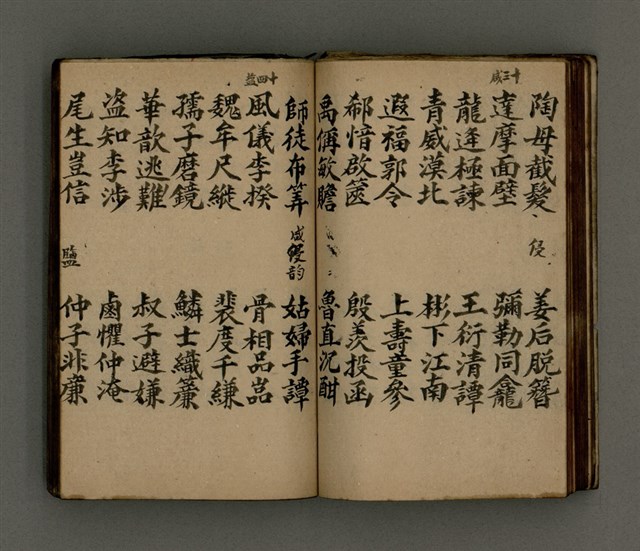 十三咸
陶母截髮 侵 姜后脱簪
達摩面壁 彌勒同龕
龍逢極諫 王衍清譚
青威漠北 彬下江南
遐福郭令 上壽童參
郗愔啟篋 殷羨投函
禹偁敏贍 魯直沉酣
師徒布筭 咸侵韵 姑婦手譚
十四盐
風儀李揆 骨相品嵓
魏牟尺縰 裴度千縑
孺子磨鏡 鱗士織簾
華歆逃難 叔子避嫌
盜知李涉 鹵懼仲淹
尾生豈信 鹽 仲子非廉